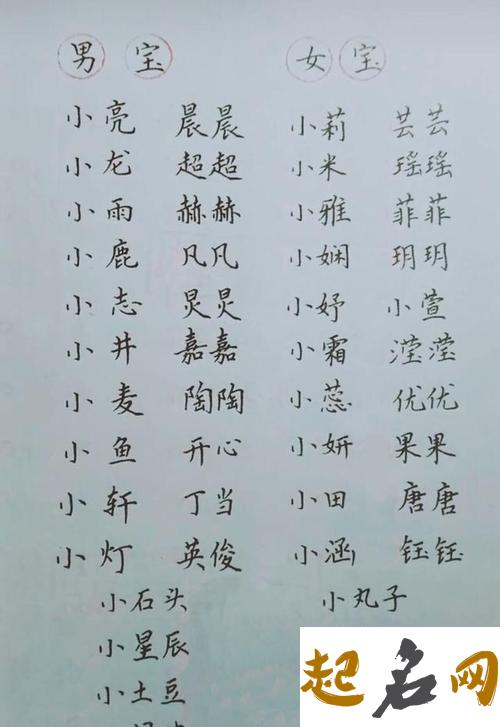 男宝 女宝
小亮 晨晨 小莉 芸芸
小龙 超超 小米 瑶瑶
小雨 赫赫 小雅 菲菲
小鹿 凡凡 小娴 玥玥
小志 炅炅 小妤 小萱
小井 嘉嘉 小霜 滢滢
小麦 陶陶 小蕊 优优
小鱼 开心 小妍 果果
小轩 丁当 小田 唐唐
小灯 英俊 小涵 钰钰
小石头 小丸子
小星辰
小土豆
起名网